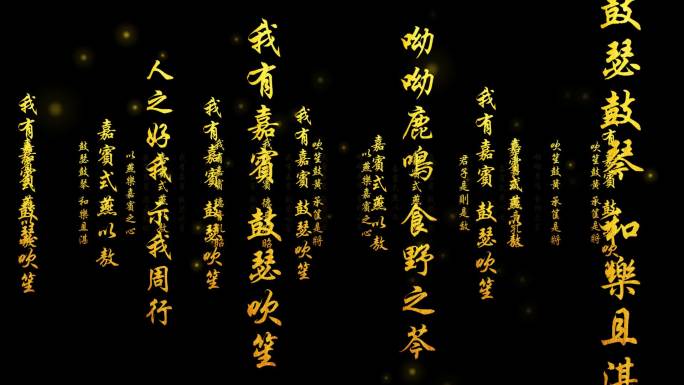 鼓瑟鼓琴 和樂且湛
吹笙鼓簧 承筐是將
吹笙鼓簧 承筐是將
嘉賓式燕以敖
我有嘉賓 鼓瑟吹笙
君子是則是效
呦呦鹿鳴 食野之芩
嘉賓式燕以敖
以燕樂嘉賓之心
我有嘉賓 鼓瑟吹笙
吹笙鼓簧 承筐是將
我有嘉賓 鼓瑟吹笙
我有嘉賓 鼓瑟吹笙
人之好我 示我周行
以燕樂嘉賓之心
嘉賓式燕以敖
鼓瑟鼓琴 和樂且湛
我有嘉賓 鼓瑟吹笙